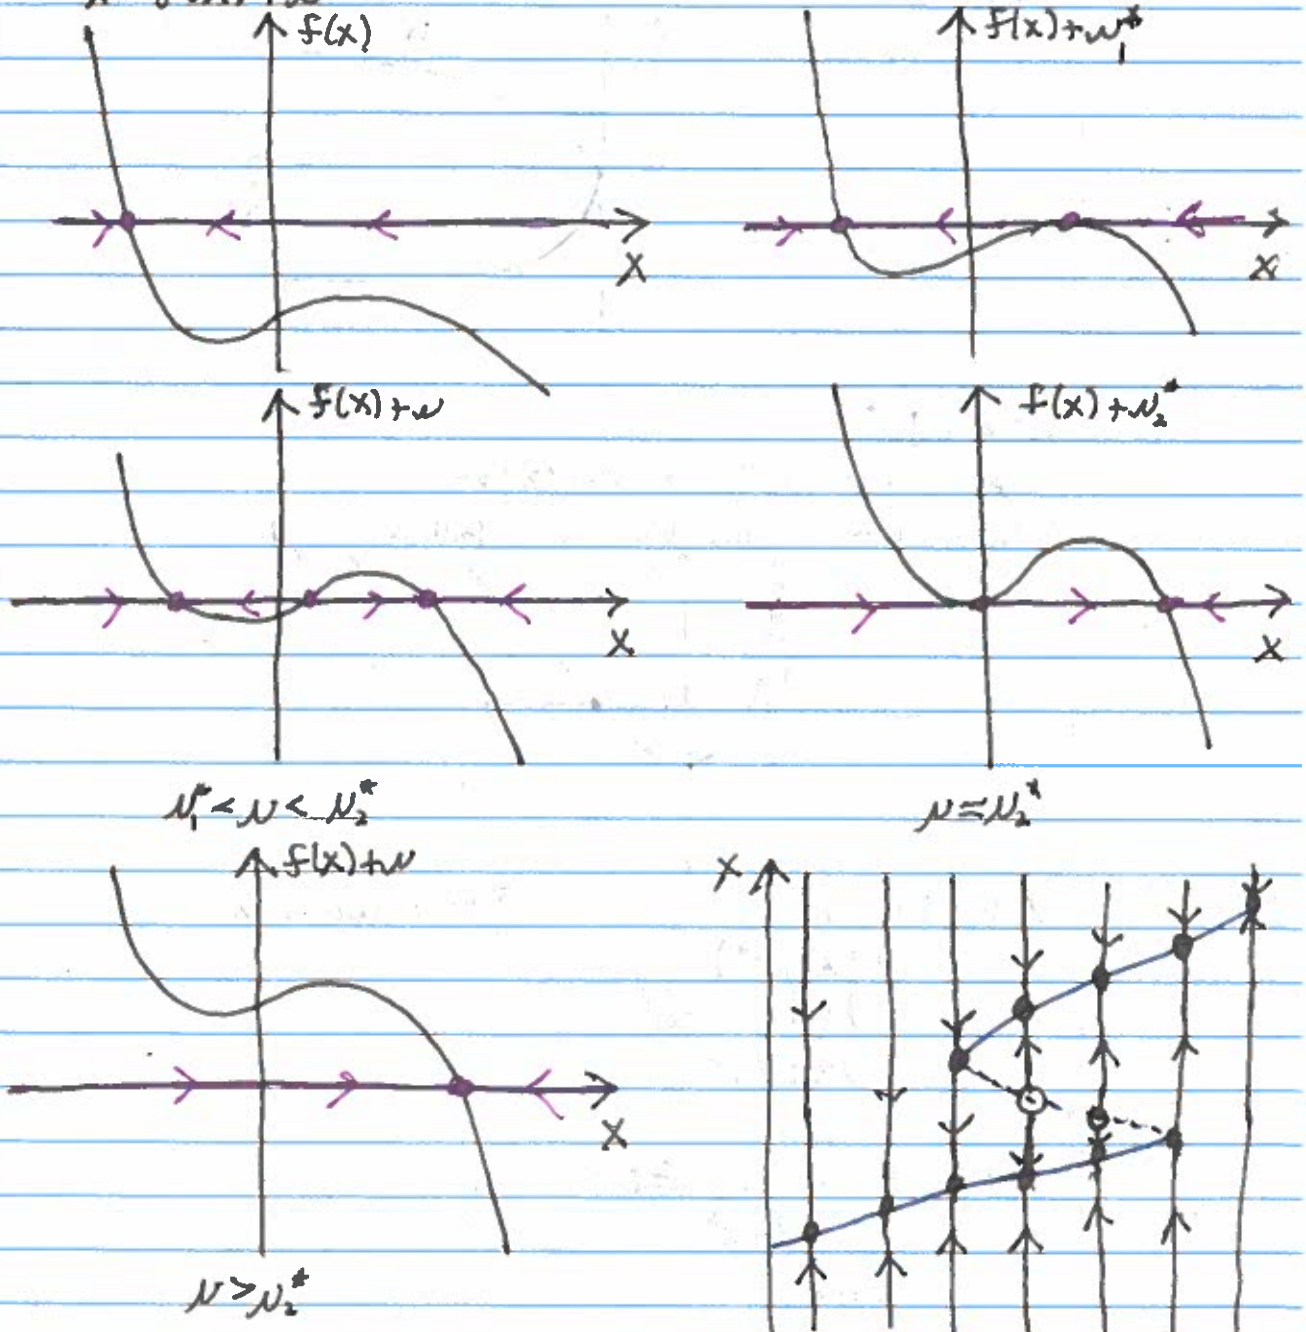 f(x)
f(x)+μ₁*
x
x
f(x)+μ
f(x)+μ₂*
x
x
μ₁*<μ<μ₂*
μ=μ₂*
f(x)+μ
x
x
μ>μ₂*